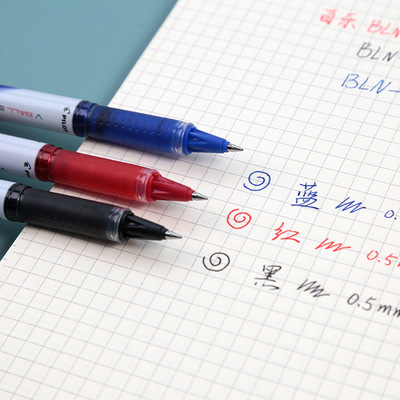 百乐 BLN
BLN-
BLN-
蓝 0.
红 0.5m
黑 0.5mm
V BALL
PILOT